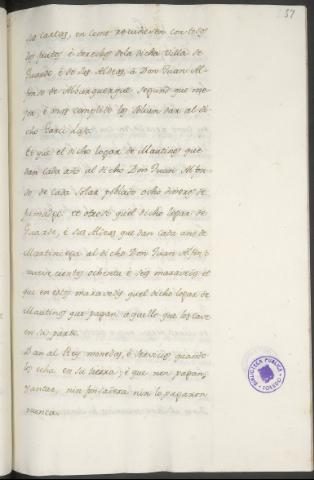 57
sus cartas, en como recudiesen con todos
los frutos, é derechos de la dicha Villa de
Guardo, é de sus Aldeas, à Don Juan Al-
fonso de Alburquerque segund que me-
jor, é mas complido los solian dar al di-
cho Garci Laso.
Et que el dicho logar de Mantinos que
dan cada año al dicho Don Juan Alfon-
so de cada solar poblado ocho dineros de
et otrosi quel dicho logar de
Guardo, é sus Aldeas que dan cada año de
Martiniega al dicho Don Juan Alfonso
nuevecientos ochenta é seis maravedis et
que en estos maravedis quel dicho logar de
Mantinos que pagan aquello que los cave
en su parte.
Dan al Rey monedas, é servicios quando
los echa en su tierra; é que non pagan
Yantar, nin fonsadera nin lo pagaron
nunca.
BIBLIOTECA PUBLICA
TOLEDO